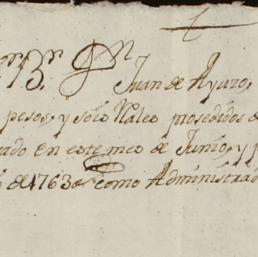 Juan de Ayuzo,
pesos, y seis Rales prosedidos d
ado en este mes de Junio, y p
de 1763 as como Administrad